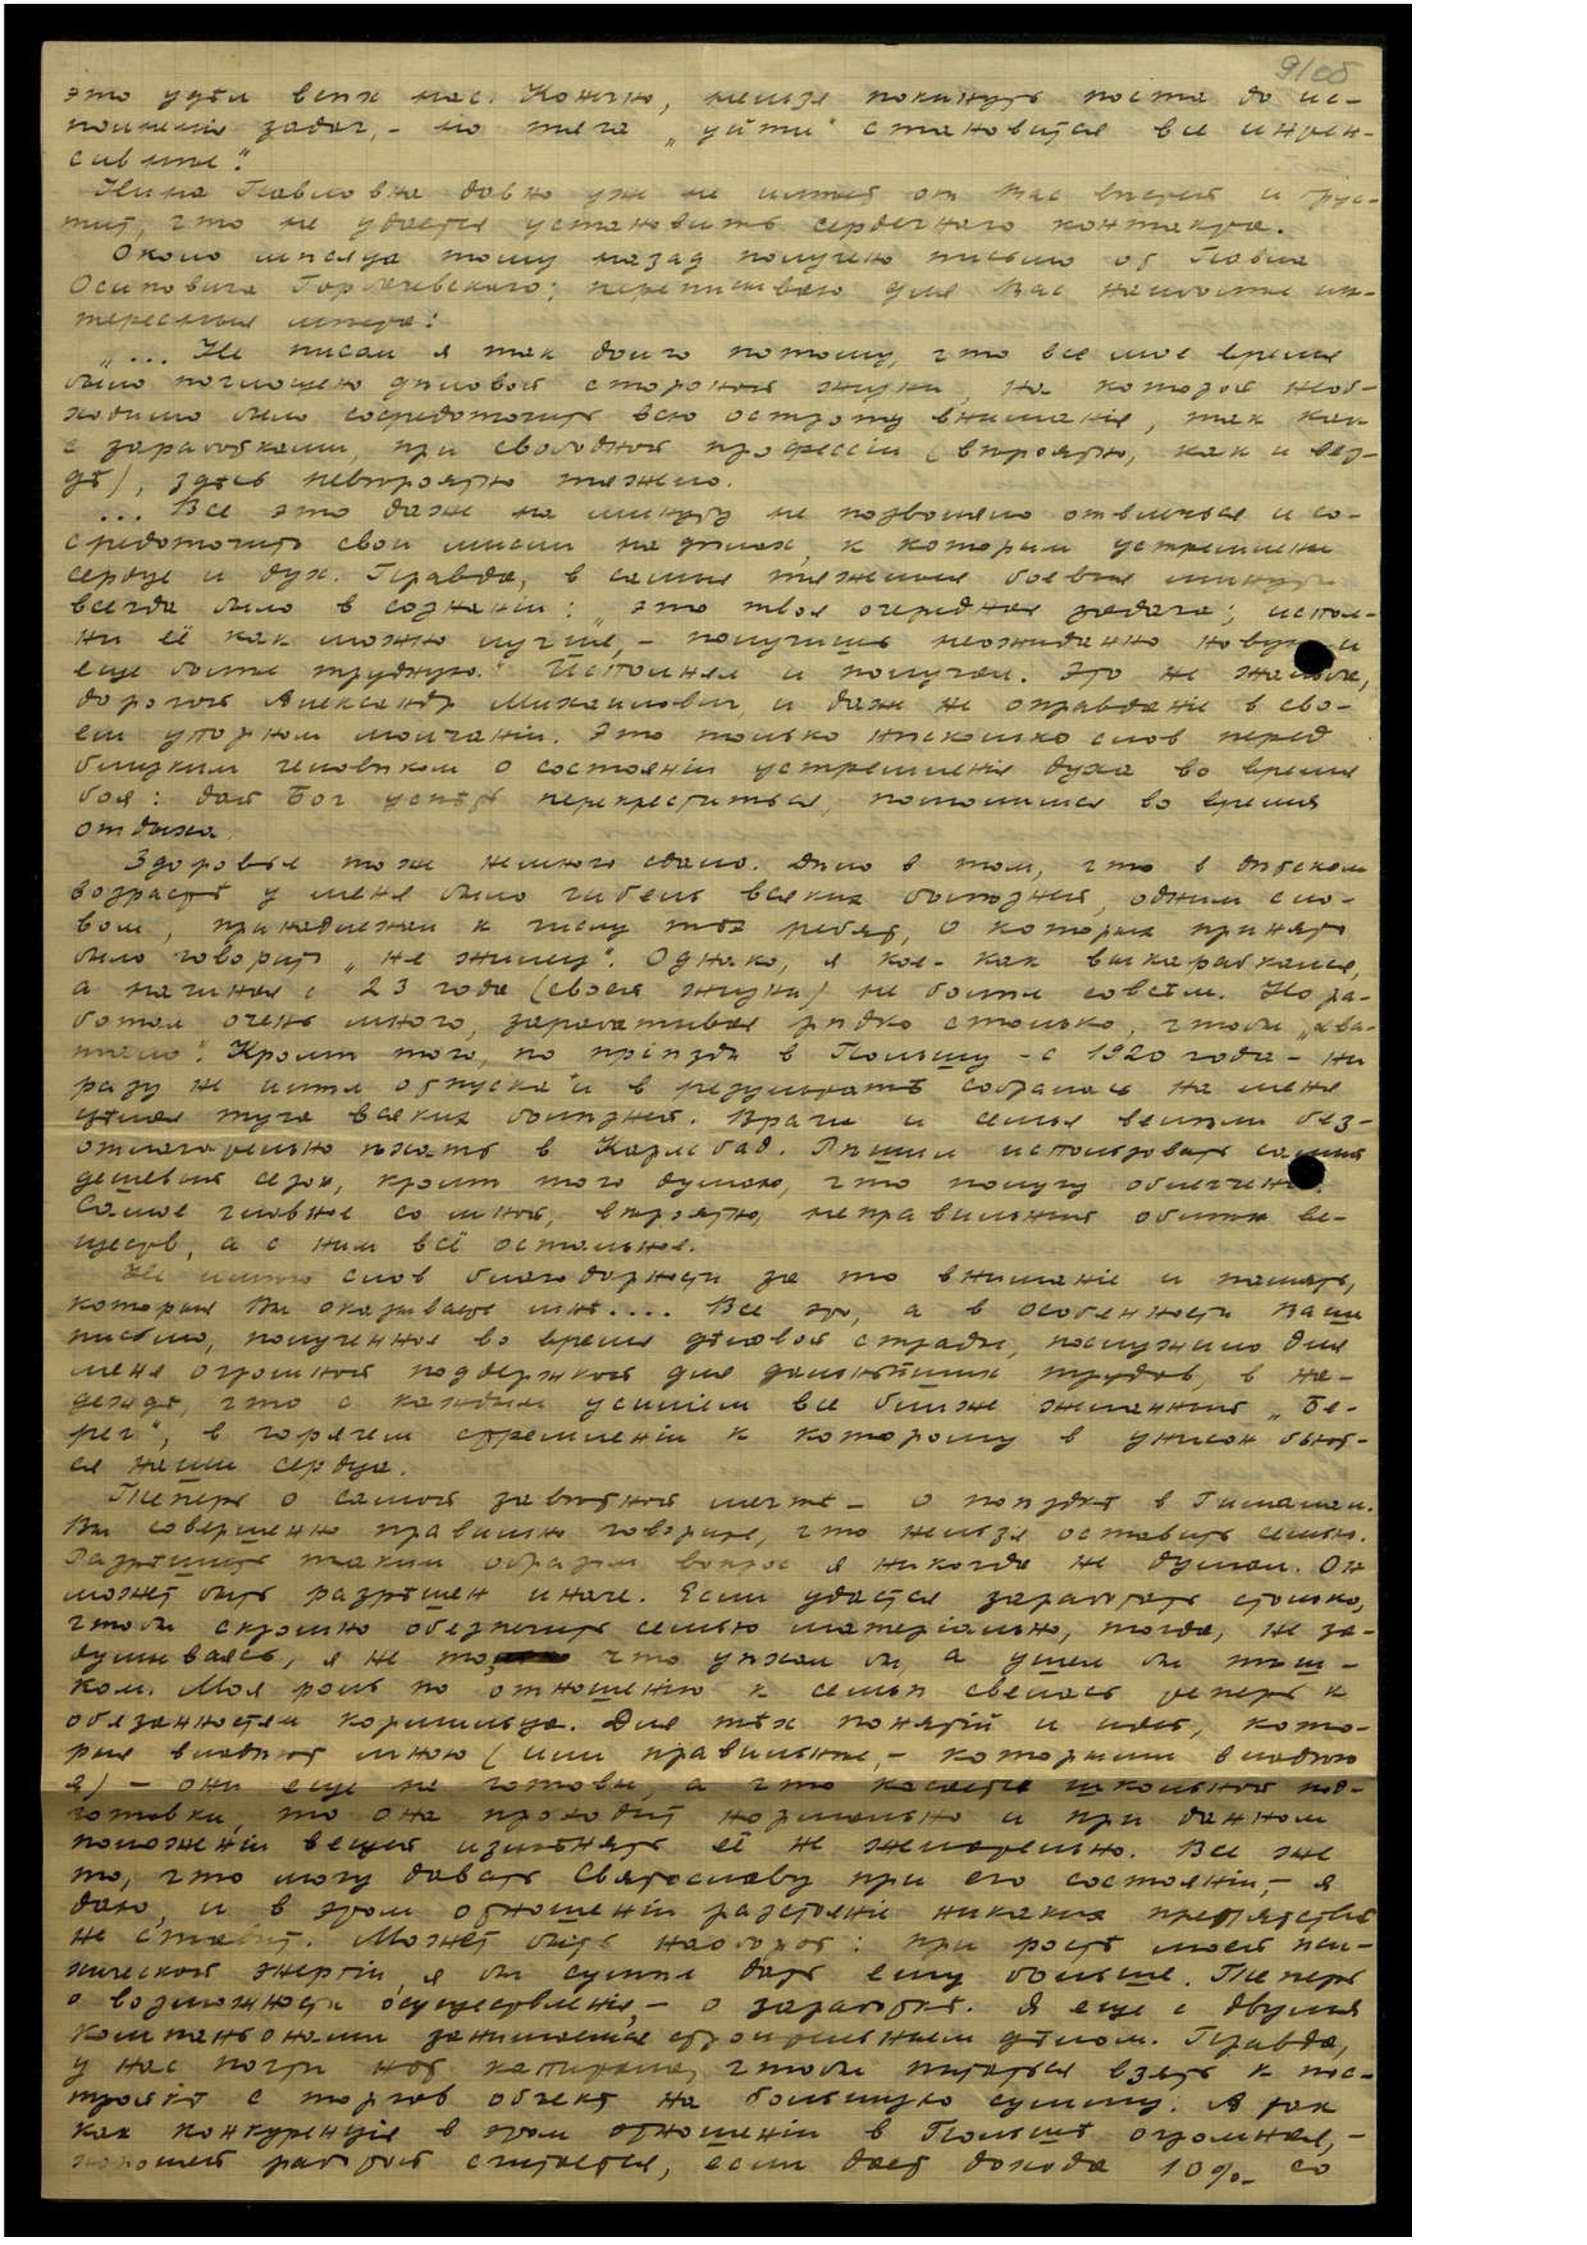 9/об
это удѣл всѣх нас. Конечно, нельзя покинуть поста до ис-
полненія задач, - но тяга „уйти“ становится все интен-
сивнѣе“.
Нина Павловна давно уже не имѣет от Вас вѣстей и грус-
тит, что не удается установить сердечнаго контакта.
Около мѣсяца тому назад получено письмо от Павла
Осиповича Горячевского; переписываю для Вас наиболѣе ин-
тересныя мѣста:
„... Не писал я так долго потому, что все мое время
было поглощено дѣловой стороной жизни, на которой необ-
ходимо было сосредоточить всю остроту вниманія, так как
с заработками, при свободной профессіи (вѣроятно, как и вез-
дѣ), здѣсь невѣроятно тяжело.
... Все это даже на минуту не позволяло отвлечься и со-
средоточить свои мысли на дѣлах, к которым устремлены
сердце и дух. Правда, в самыя тяжелыя боевыя минуты
всегда было в сознаніи: „это твоя очередная задача; испол-
ни её как можно лучше, - получишь неожиданно новую и
еще болѣе трудную.“ Исполнял и получал. Это не жалоба,
дорогой Александр Михайлович, и даже не оправданіе в сво-
ем упорном молчаніи. Это только нѣсколько слов перед
близким человѣком о состояніи устремленія духа во время
боя: дай Бог успѣть перекреститься, помолимся во время
отдыха.
Здоровье тоже немного сдало. Дѣло в том, что в дѣтском
возрастѣ у меня было гибель всяких болѣзней, одним сло-
вом, принадлежал к числу тѣх ребят, о которых принято
было говорить „не жилец“. Однако, я кое-как выкарабкался,
а начиная с 23 года (своей жизни) не болѣл совсѣм. Но ра-
ботал очень много, зарабатывая рѣдко столько, чтобы „хва-
тало“. Кромѣ того, по пріѣздѣ в Польшу - с 1920 года - ни
разу не имѣл отпуска и в результатѣ собралась на меня
цѣлая туча всяких болѣзней. Врачи и семья велѣли без-
отлагательно ѣхать в Карлсбад. Рѣшил использовать самый
дешевый сезон, кромѣ того думаю, что получу облегченіе.
Самое главное со мной, вѣроятно, неправильный обмѣн ве-
ществ, а с ним всё остальное.
Не имѣю слов благодарности за то вниманіе и память,
которыя Вы оказываете мнѣ.... Все это, а в особенности Ваше
письмо, полученное во время дѣловой страды, послужило для
меня огромной поддержкой для дальнѣйших трудов, в на-
деждѣ, что с каждым усиліем все ближе желанный „Бе-
рег“, в горячем стремленіи к которому в унисон бьют-
ся наши сердца.
Теперь о самой завѣтной мечтѣ - о поѣздкѣ в Гималаи.
Вы совершенно правильно говорите, что нельзя оставить семью.
Разрѣшить таким образом вопрос я никогда не думал. Он
может быть разрѣшен иначе. Если удастся заработать столько,
чтобы скромно обезпечить семью матеріально, тогда, не за-
думываясь, я не то, что уѣхал бы, а ушел бы пѣш-
ком. Моя роль по отношенію к семьѣ свелась теперь к
обязанностям кормильца. Для тѣх понятій и идей, кото-
рые владѣют мною (или правильнѣе, - которыми владѣю
я) - они еще не готовы, а что касается школьной под-
готовки, то она проходит нормально и при данном
положеніи вещей измѣнять её не желательно. Все же
то, что могу давать Святославу при его состояніи, - я
даю, и в этом отношеніи разстояніе никаких препятствій
не ставит. Может быть наоборот: при ростѣ моей пси-
хической энергіи, я бы сумѣл дать ему больше. Теперь
о возможности осуществленія, - о заработкѣ. Я еще с двумя
компаньонами занимаемся строительным дѣлом. Правда,
у нас почти нѣт капитала, чтобы пытаться взять к пос-
тройкѣ с торгов объект на большую сумму. А так
как конкуренція в этом отношеніи в Польшѣ огромная, -
хорошей работой считается, если дает дохода 10% со